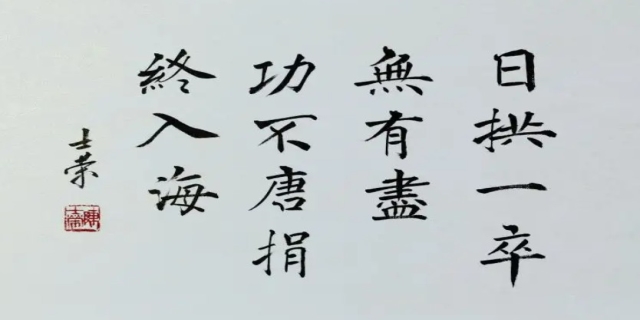 日拱一卒
無有盡
功不唐捐
終入海
士荣